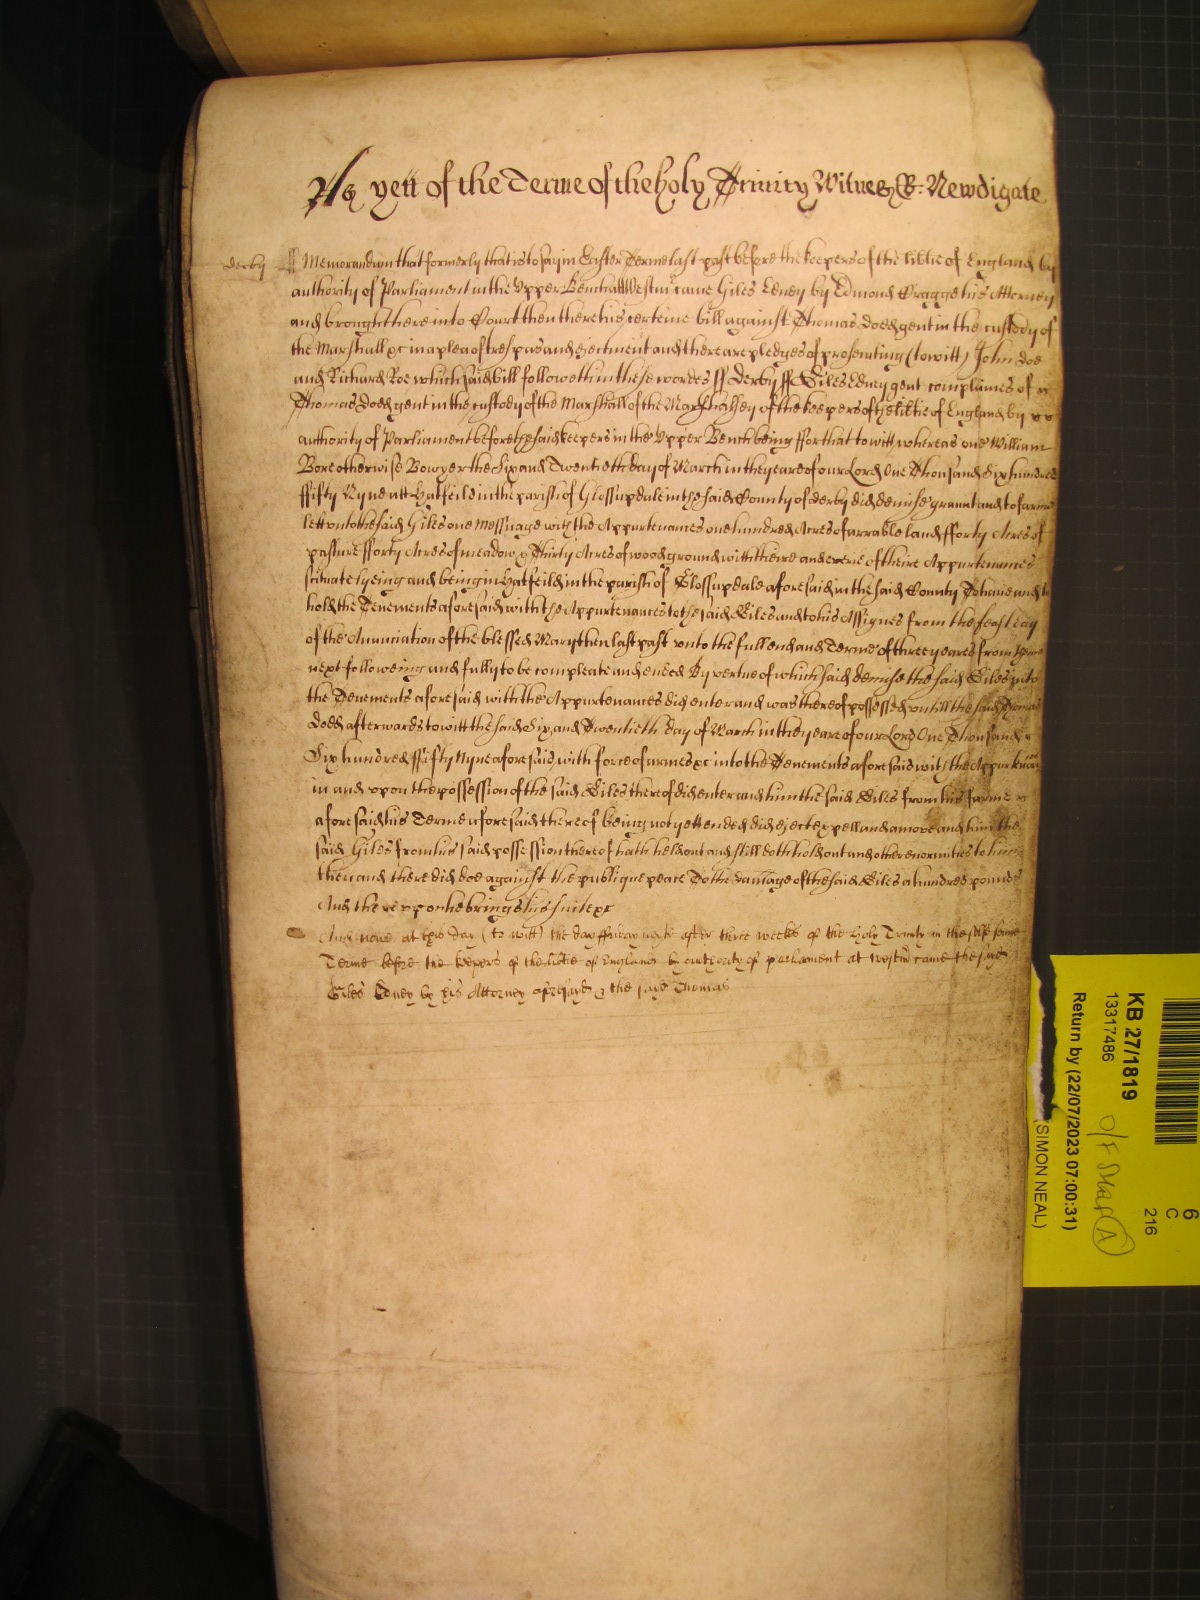 As yett of the Terme of the holy Trinity Witnes R: Newdigate
Derby ss Memorandum that formerly that is to say in Easter Terme last past before the keepers of the libtie of England by
authority of Parliament in the Upper Bench att Westm came Giles Edney by Edmond Cragge his Attorney
and brought here into Court then there his certeine bill against Thomas Doed gent in the custody of
the Marshall &c in a plea of trespas and ejectment and there are pledges of prosecuting (to witt) John Doe
and Richard Roe which said bill followeth in these wordes ss Derby ss Giles Edney gent complaines of
Thomas Doed gent in the custody of the Marshall of the Marshalsey of the keepers of the libtie of England by
authority of Parliament before the said keepers in the Upper Bench being ffor that to witt whereas one William
Bore otherwise Bowyer the Six and Twentieth day of March in the yeare of our Lord One Thousand Six hundred
ffifty Nyne att Hatfeild in the parish of Glossupdale in the said County of derby did demise graunt and to farme
lett unto the said Giles one Messuage with the Appurtenances one hundred Acres of arrable land fforty Acres of
pasture fforty Acres of meadow & Thirty Acres of wood ground with theire and everie of theire Appurtenances
scituate lyeing and being in Hatfeild in the parish of Glossupdale aforesaid in the said County To have and to
hold the Tenements aforesaid with the Appurtenances to the said Giles and to his Assignes from the feast day
of the Anunciation of the blessed Mary then last past unto the full end and Terme of three yeares from thence
next followeing and fully to be compleate and ended By vertue of which said demise the said Giles into
the Tenements aforesaid with the Appurtenances did enter and was thereof possessed untill the said Thomas
Doed afterwards to witt the said Six and Twentieth day of March in the yeare of our Lord One Thousand
Six hundred ffifty Nyne aforesaid with force of armes &c into the Tenements aforesaid with the Appurtenances
in and upon the possession of the said Giles thereof did enter and him the said Giles from his farme
aforesaid his Terme aforesaid thereof being not yett ended did eject expell and amove and him the
said Giles from his said possession thereof hath held out and still doth hold out and other enormities to him
then and there did doe against the publique peace To the damage of the said Giles a hundred pounds
And thereupon he brings his suite &c
And now at this day (to witt) the day ffriday next after three weekes of the holy Trinity in the same
Terme before the keepers of the libtie of England by authority of parliament at Westm came the said
Giles Edney by his Attorney aforesaid & the said Thomas
KB 27/1819
13317486
Return by (22/07/2023 07:00:31)
(SIMON NEAL)
6
C
216
A